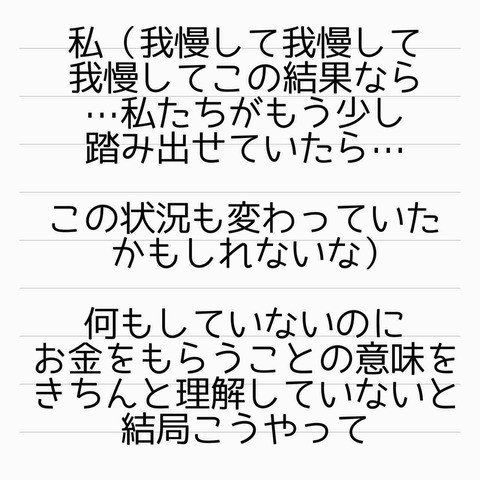 私（我慢して我慢して
我慢してこの結果なら
…私たちがもう少し
踏み出せていたら…
この状況も変わっていた
かもしれないな）
何もしていないのに
お金をもらうことの意味を
きちんと理解していないと
結局こうやって